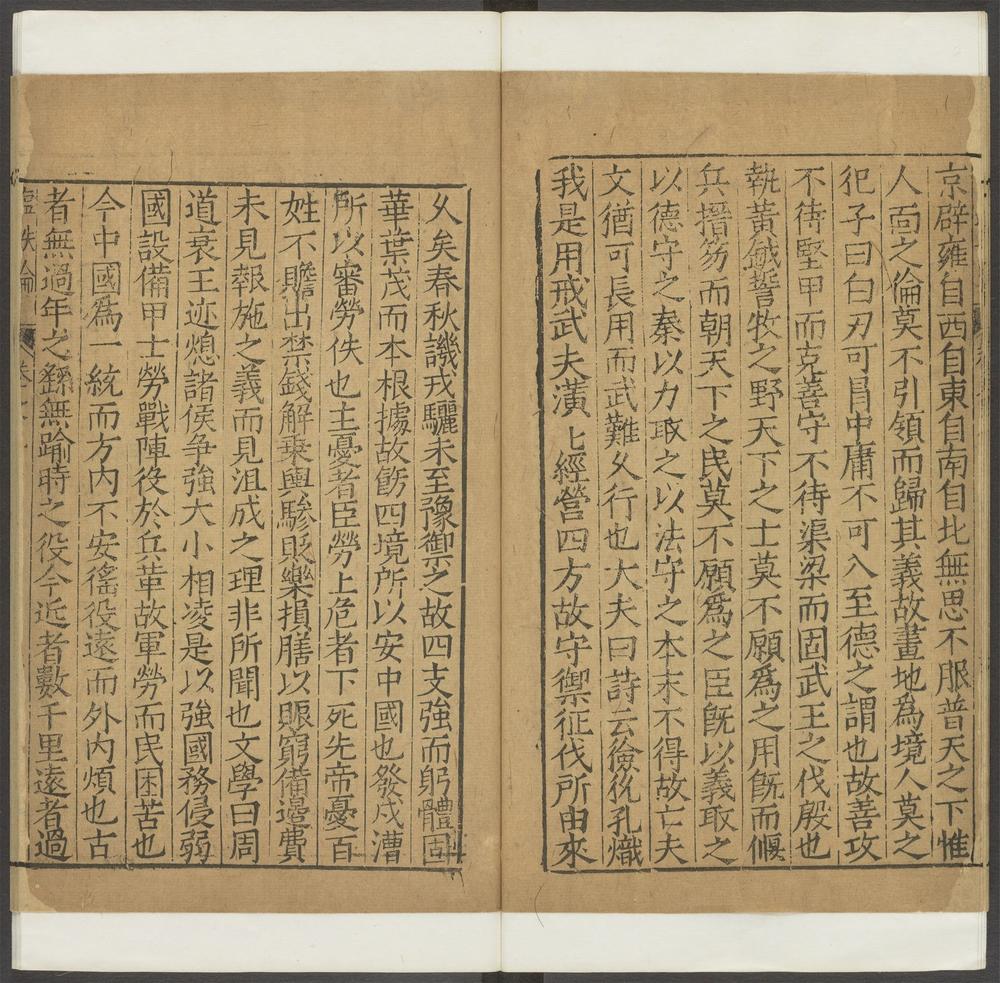 京辟雍自西自東自南自北無思不服普天之下惟
人面之倫莫不引領而歸其義故畫地為境人莫之
犯子曰白刃可冐中庸不可入至德之謂也故善攻
不待堅甲而克善守不待渠梁而固武王之伐殷也
執黃鉞誓牧之野天下之士莫不願為之用旣而偃
兵搢笏而朝天下之民莫不願為之臣旣以義取之
以德守之秦以力取之以法守之本末不得故亡夫
文猶可長用而武難乆行也大夫曰詩云獫狁孔熾
我是用戒武夫潢〻經營四方故守禦征伐所由來
乆矣春秋譏戎驪未至豫禦之故四支強而躬體固
華葉茂而本根據故飭四境所以安中國也發戍漕
所以審勞佚也主憂者臣勞上危者下死先帝憂百
姓不贍出禁錢解乗輿驂貶樂損膳以賑窮備邊費
未見報施之義而見沮成之理非所聞也文學曰周
道衰王迹熄諸侯争強大小相凌是以強國務侵弱
國設備甲士勞戰陣役於兵革故軍勞而民困苦也
今中國為一統而方内不安徭役遠而外内煩也古
者無過年之繇無踰時之役今近者數千里遠者過
鹽鉄論